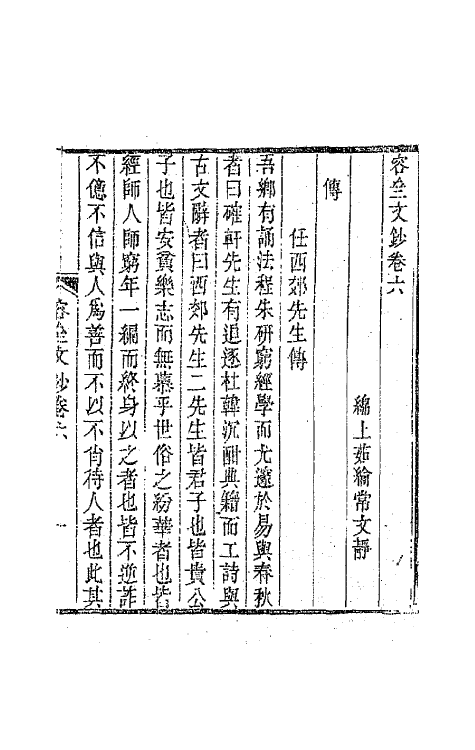 容坌文鈔卷六
綿上茹綸常文靜
傳
任西郊先生傳
吾鄉有誦法程朱研窮經學而尤邃於易與春秋
者曰確軒先生有追逐杜韓沉酣典籍而工詩與
古文辭者曰西郊先生二先生皆君子也皆貴公
子也皆安貧樂志而無慕乎世俗之紛華者也皆
經師人師窮年一編而終身以之者也皆不逆詐
不億不信與人爲善而不以不肖待人者也此其
容坌文鈔卷六
一